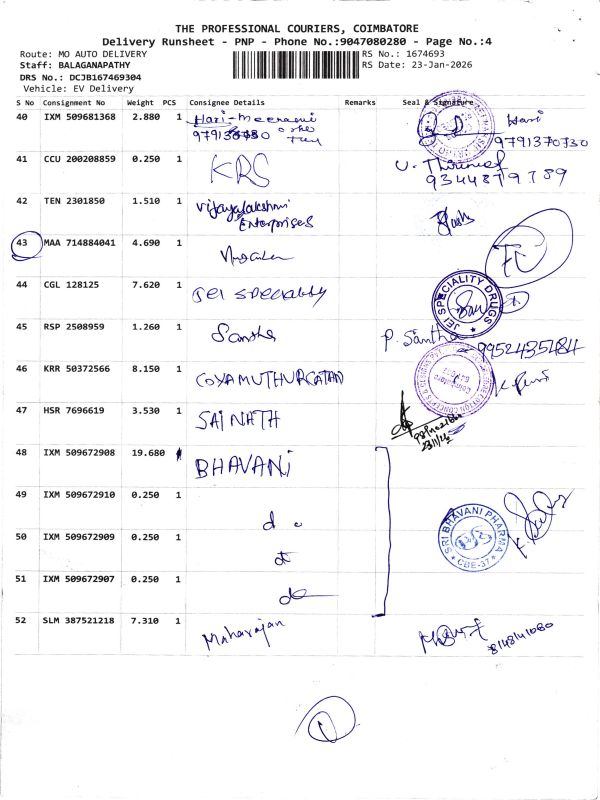 THE PROFESSIONAL COURIERS, COIMBATORE
Delivery Runsheet - PNP - Phone No.:9047080280 - Page No.:4
Route: MO AUTO DELIVERY
RS No.: 1674693
Staff: BALAGANAPATHY
RS Date: 23-Jan-2026
DRS No.: DCJB167469304
Vehicle: EV Delivery
S No Consignment No Weight PCS Consignee Details Remarks Seal & Signature
40 IXM 509681368 2.880 1 Hari-Meenami Hari
9791370730
41 CCU 200208859 0.250 1 KRS
9344879789
42 TEN 2301850 1.510 1 Vijayalakshmi
Enterprises
43 MAA 714884041 4.690 1
44 CGL 128125 7.620 1 JEI Speciality JEI SPECIALITY DRUGS
45 RSP 2508959 1.260 1 Santha P. Santha
9952435484
46 KRR 50372566 8.150 1 COYAMUTHURGATAN
47 HSR 7696619 3.530 1 SAINATH
48 IXM 509672908 19.680 BHAVANI
49 IXM 509672910 0.250 1 do
50 IXM 509672909 0.250 1
SRI BHAVANI PHARMA CBE-37
51 IXM 509672907 0.250 1
52 SLM 387521218 7.310 1 Maharajan
8148141080
1